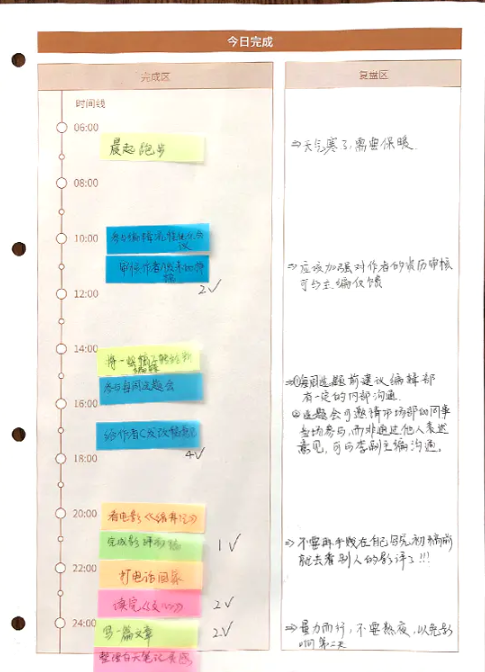 今日完成
完成区
复盘区
时间线
06:00
晨起跑步
⇒天气寒了,需要保暖.
08:00
10:00
审阅作者
⇒应该加强对作者的资历审核
可与主编反馈
12:00
2✓
14:00
将一校稿
参与每周选题会
⇒①每周选题前建议编辑部
有一定的内部沟通.
②选题会可邀请市场部的同事
当场参与,而非通过他人表述
意见,可与李副主编沟通。
16:00
给作者C发改稿意见
4✓
18:00
20:00
看电影《编舟记》
完成影评初稿
1✓
⇒不要再手贱在自己写完初稿前
就去看别人的影评了!!!
22:00
打电话回家
读完《
2✓
24:00
写一篇文章
2✓
⇒量力而行,不要熬夜,以免影
响第二天
整理白天笔记